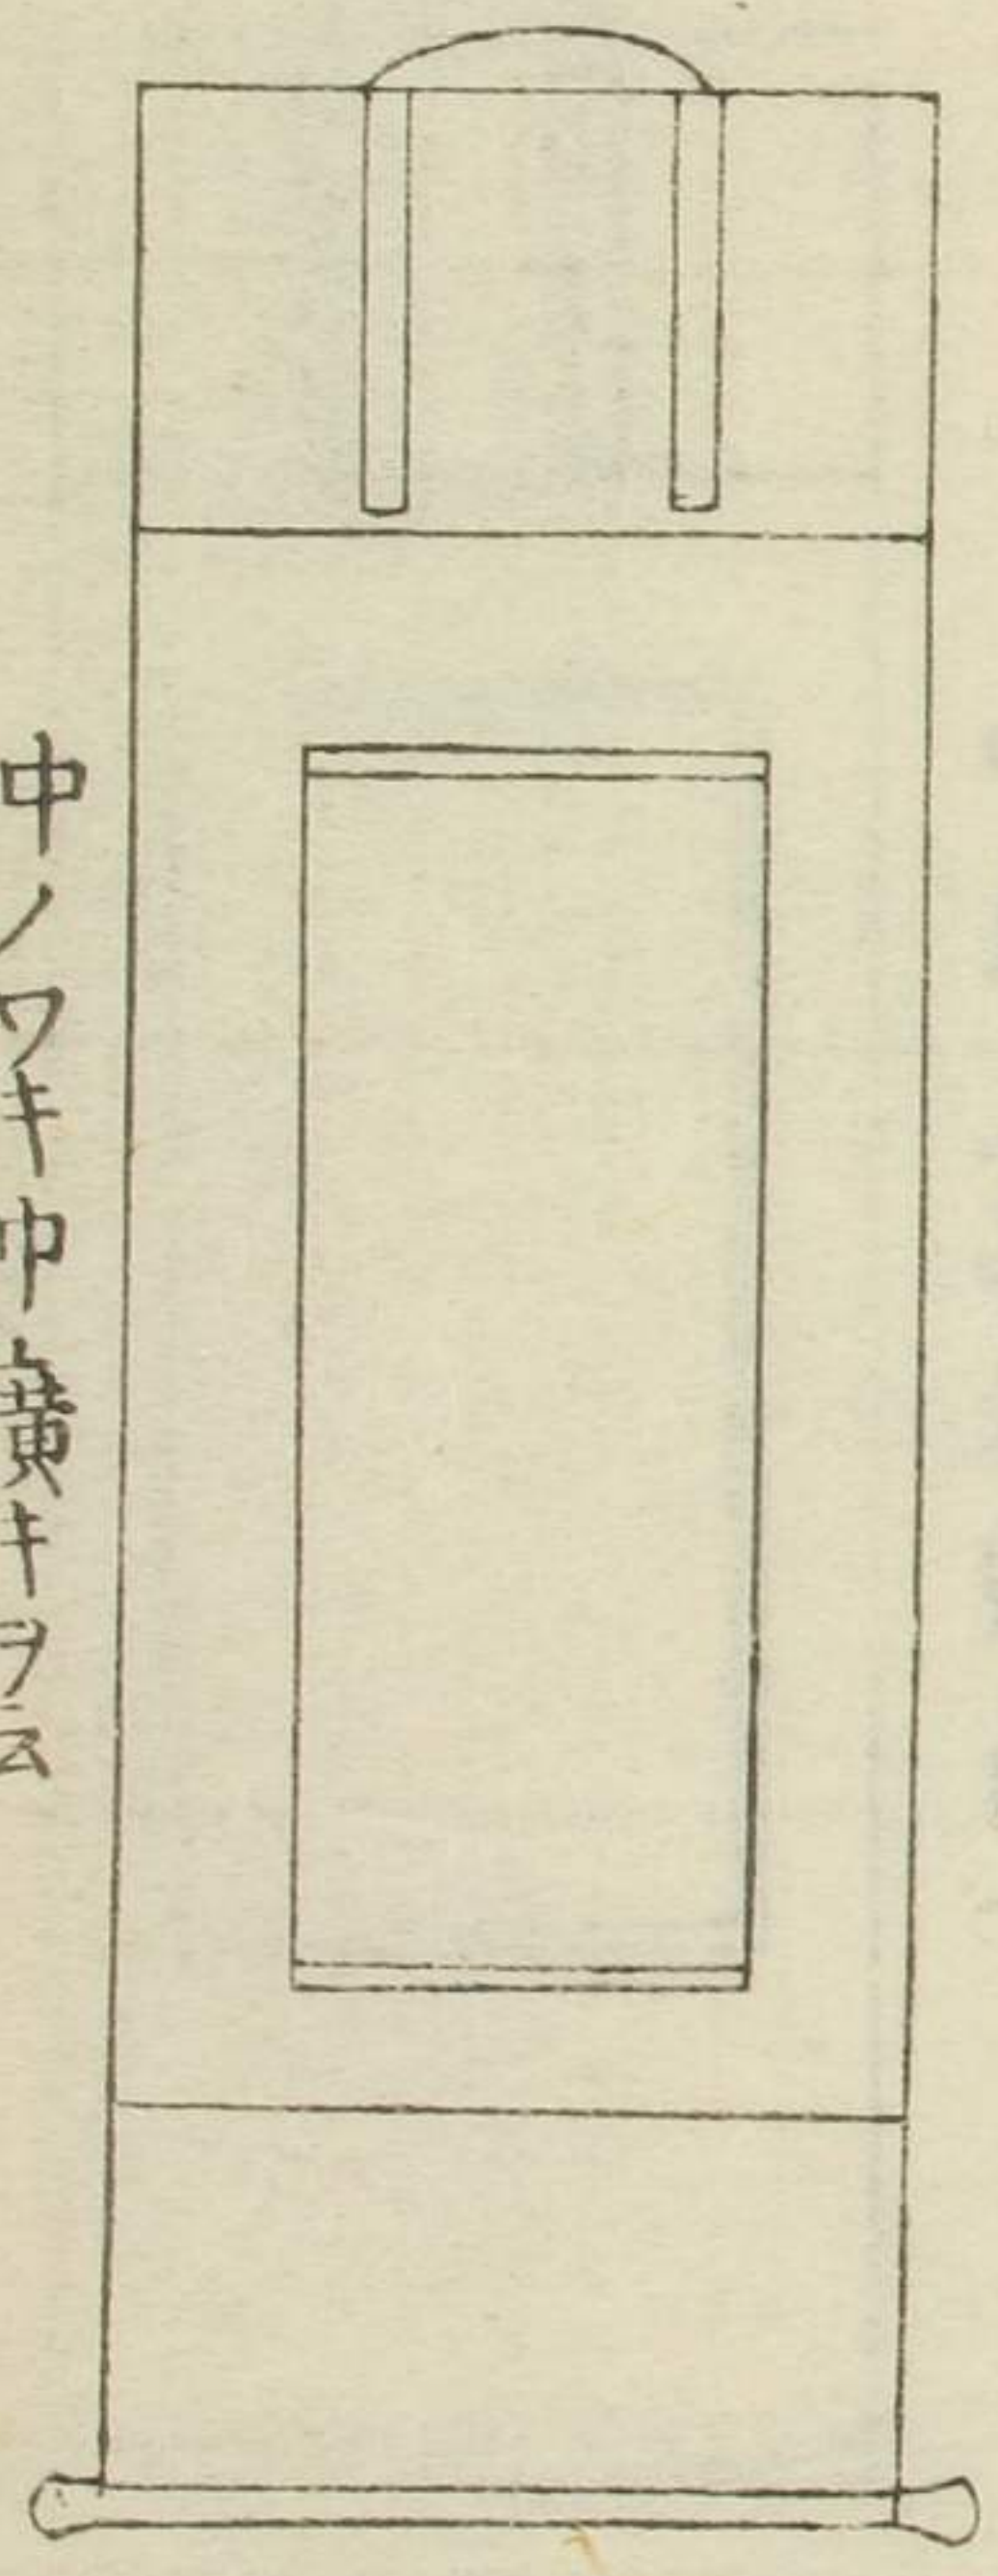 中ノワキ巾廣キヲ云